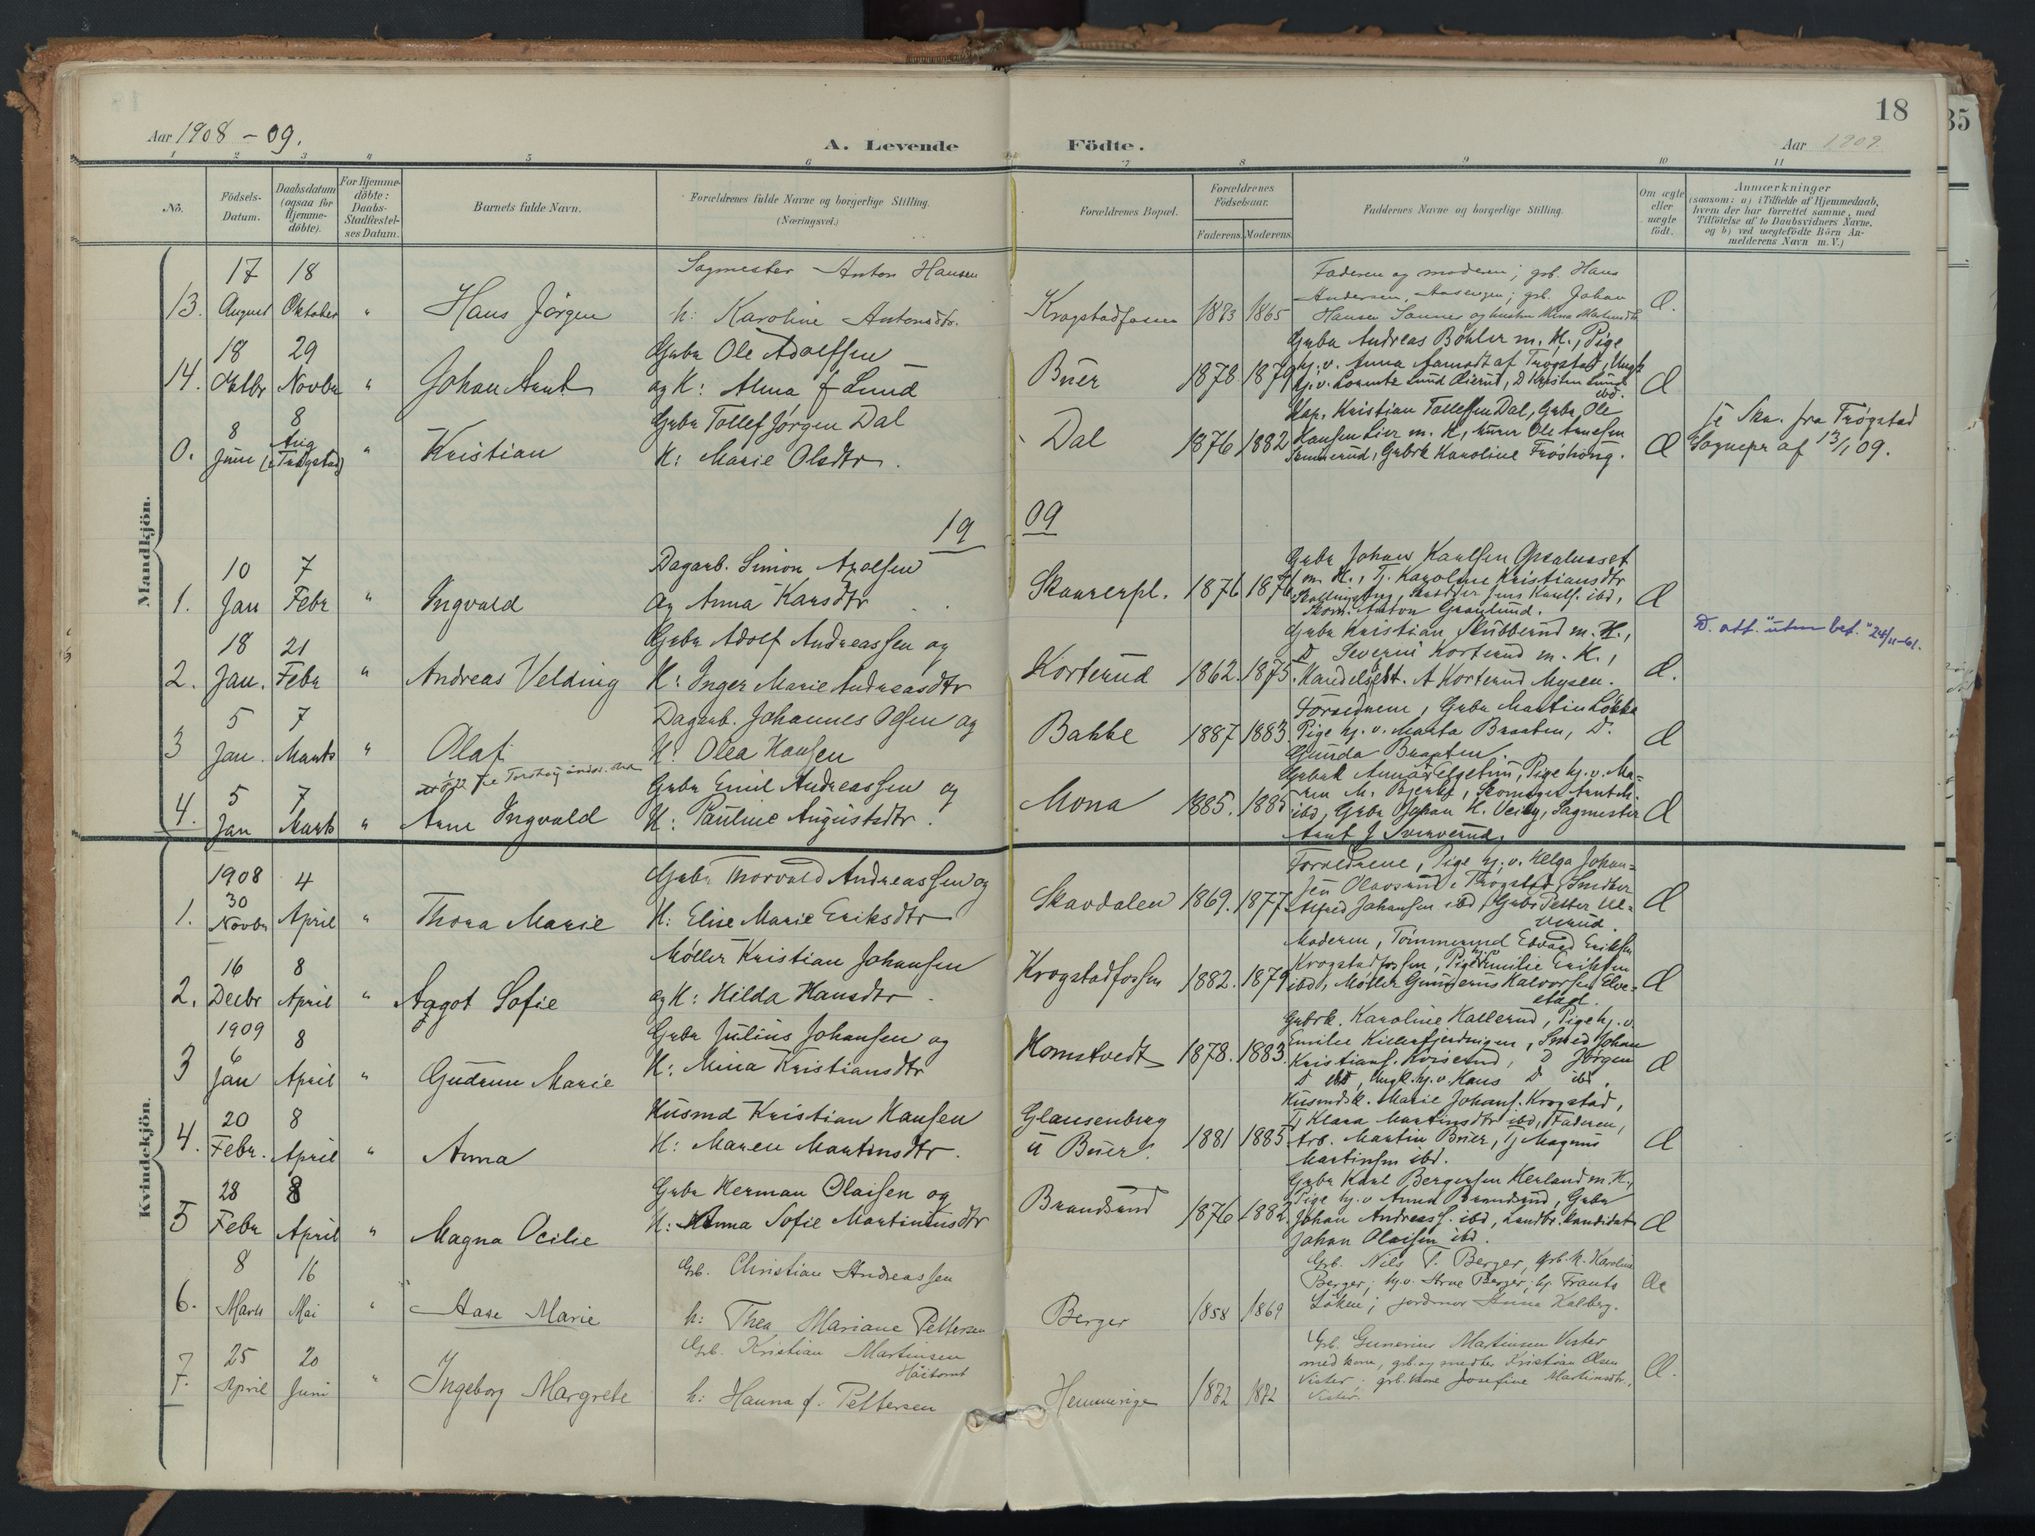 18
35
Aar 1908 - 09.
A. Levende Födte.
Aar 1909.
1 2 3 4 5 6 7 8 9 10 11
No.
Födsels-Datum.
Daabsdatum (ogsaa for Hjemme-döbte).
For Hjemme-döbte: Daabs-Stadfæstel-ses Datum.
Barnets fulde Navn.
Forældrenes fulde Navne og borgerlige Stilling. (Næringsvei.)
Forældrenes Bopæl.
Forældrenes Födselsaar.
Faderens. Moderens.
Faddernes Navne og borgerlige Stilling.
Om ægte eller uægte födt.
Anmærkninger
(saasom: a) i Tilfælde af Hjemmedaab, hvem der har forrettet samme, med Tilföielse af to Daabsvidners Navne, og b) ved uægtefödte Börn An-melderens Navn m. V.)
Mandkjön.
13. 17 August 18 Oktober " Hans Jörgen
Sagmester Anton Hansen
h: Karoline Antonsdtr.
Krogstadfossen 1873 1865
Faderen og moderen; grb. Hans
Andersen, ; grb. Johan
Hansen Sanner og hustru Mina
Æ.
14. 18 Oktbr 29 Novbr " Johan Arnt
Gubr Ole Adolfsen
og K: Alma f Lund
Buer 1878 1879
Gubr Andreas Böhler m. K., Pige
hj. v. Anna Aamodt af Trøgstad, Ungk
hj. v. Lorentz Lund , D Kristen Lund
ibd.
Æ
0. 8 Juni 8 Aug (i Trøgstad) " Kristian
Gubr Tollef Jørgen Dal
K: Marie Olsdtr.
Dal 1876 1882
Kap. Kristian Tollefsen Dal, Gubr Ole
Hansen Lier m. K, Murer Ole Arnesen
, Gubrk Karoline .
Æ
fra Trøgstad
Sognepr af 13/1 09.
19 09
1. 10 Jan 7 Febr " Ingvald
Dagarb. Simon Apolsen
og Anna Karsdtr
Skaarerpl. 1876 1876
Gubr Johan Karlsen
m. K., Tj. Karoline Kristiansdtr
Jens Karls. ibd,
Skom. Anton Granlund.
Æ
2. 18 Jan. 21 Febr " Andreas Velding
Gubr Adolf Andreassen og
K: Inger Marie Andreasdtr
Korterud 1862. 1875.
Gubr Kristian Skubberud m. K.,
D Severin Korterud m. K.,
Handelsbt. A Korterud Mysen.
Æ.
D. att. "uten bet." 24/11-61.
3 5 Jan. 7 Marts " Olaf
Dagarb. Johannes Olsen og
K: Olea Hansen
Bakke 1887 1883
Forældrene, Gubr Martin Løkke
Pige hj. v. Marta Braaten, D.
Gunda Braaten.
Æ
4. 5 Jan 7 Marts " Arne Ingvald
Gubr Emil Andreassen og
K: Pauline Augustsdtr.
Mona 1885. 1885
Gubrk Anna , Pige hj. v. Ma-
ren M. , Skomager Arnt M.
ibd, Gubr Johan H. Veiby, Sagmester
Arnt J Sververud,
Æ
Kvindekjön.
1. 1908 30 Novbr 4 April " Thora Marie
Gubr Thorvald Andreassen og
K: Elise Marie Eriksdtr
Skavdalen 1869. 1877
Forældrene, Pige hj. v. Helga Johan-
sen Olavsrud i Trøgstad, Smdber
Alfred Johansen ibd, Gubr Petter Ul-
verud.
Æ
2. 16 Decbr 8 April " Aagot Sofie
Møller Kristian Johansen
og K: Hilda Hansdtr.
Krogstadfossen 1882. 1879
Moderen, Tømmermd Edvard Eriksen
Krogstadfossen, Pige Emilie Eriksen
ibd, Møller Gunerius Halvorsen Elve-
stad.
Æ
3 1909 6 Jan 8 April " Gudrun Marie
Gubr Julius Johansen og
K: Mina Kristiansdtr
Homstvedt 1878. 1883.
Gubrk. Karoline Hallerud, Pige hj. v.
Emilie , Smed Johan
Kristians. , D Jørgen
D ibd, Ungk. hj. v. Hans D ibd.
Æ
4. 20 Febr. 8 April " Anna
Husmd Kristian Hansen
K: Maren Martinsdtr.
Glansenberg
u Buer. 1881 1885
Husmdsk. Marie Johans. Krogstad,
Tj Klara Martinsdtr ibd, Faderen,
Arb. Martin Buer, Tj Magnus
Martinsen ibd.
Æ
5 28 Febr 8 April " Magna Ocilie
Gubr Herman Olaisen og
K: Anna Sofie Martiniusdtr
Brandsrud 1876 1882
Gubr Karl Bergersen Herland m. K,
Pige hj. v Anna Brandsrud, Gubr
Johan Andreass. ibd, Landbr. kandidat
Johan Olaisen ibd.
Æ
6. 8 Marts 16 Mai " Aase Marie
Grb. Christian Andreassen
h: Thea Mariane Pettersen
Berger 1858 1869
Grb. Nils T. Berger, grb. k. Karoline
Berger; hj. v. Arne Berger; hj. Frants
Løken; jordmor Anna Kalberg.
Æ
7. 25 April 20 Juni " Ingeborg Margrete
Grb. Kristian Martinsen
Håitomt
h: Hanna f. Pettersen
Hemminge 1872 1872
Grb. Gunerius Martinsen Vister
med kone, grb. og smedter Kristian Olsen
Vister; grb. kone Josefine Martinsdtr,
Vister.
Æ.